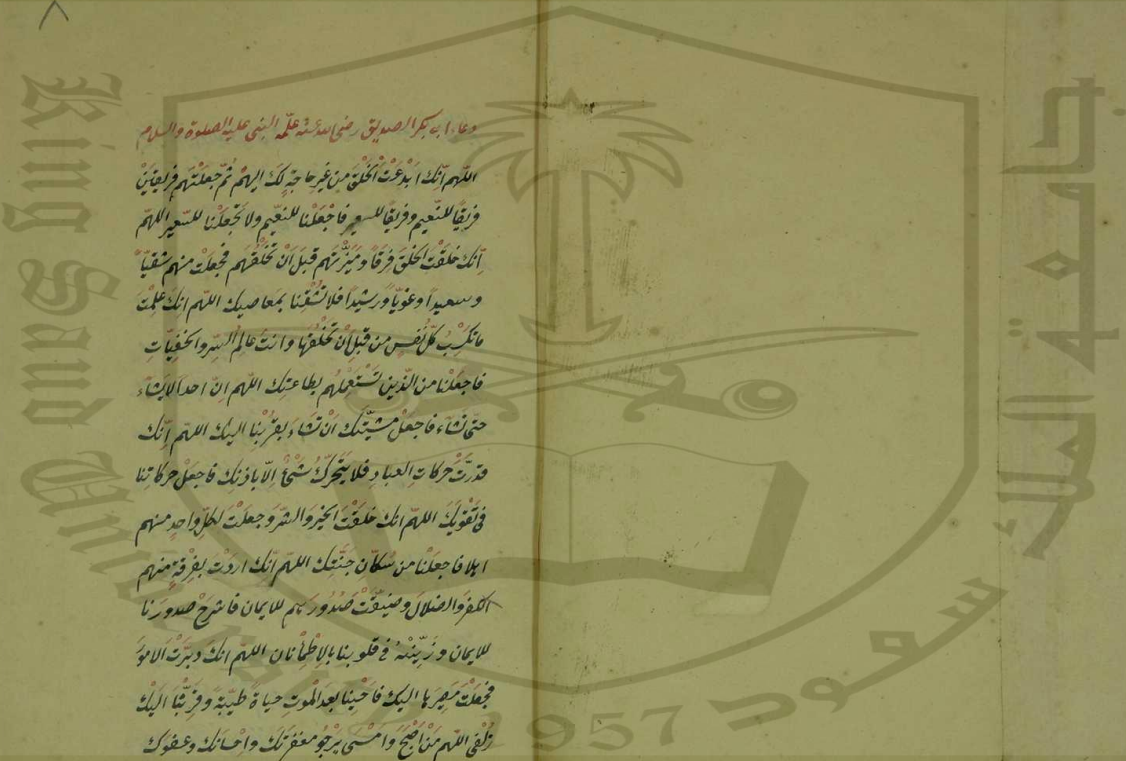 دعاء ابى بكر الصديق رضى الله عنه علّمه النبى عليه الصلوة والسلام
اللّهم انّك ابْدَعْتَ الْخَلْقَ من غير حاجةٍ لَكَ اليهم ثُمّ جعلْتَهم فريقَيْن
فريقًا للنّعيم وفريقًا للسعير فاجْعَلْنا للنعيم ولا تَجْعَلْنا للسّعير اللهمّ
اِنّك خلقتَ الخلقَ فِرَقًا ومَيَّزْتَهم قبلَ اَنْ تخلُقَهم فجعلْتَ منهم شقيّاً
وسعيداً وغويّاً ورشيداً فلا تُشْقِنا بمعاصيك اللهم انك علمْتَ
ما تكْسِبُ كلّ نفسٍ من قبلِ اَنْ تَخْلُقَها وانت عالم السّر والخفيّاتِ
فاجعلْنا من الذّين تَسْتعمِلُهم بطاعتك اللهم انّ احداً لا يشاء
حتى تشاء فاجعلْ مشيّتك اَنْ تشاءَ بقرْبنا اليك اللهمّ اِنّك
قدرّتَ حركاتِ العبادِ فلا يتحرّكُ شئٌ اِلاّ باذنك فاجعلْ حركاتِنا
فى تقويك اللهمّ انك خلقْتَ الخير والشرّ وجعلْتَ لكلّ واحدٍ منهم
اهلا فاجعلْنا من سُكّان جنّتِك اللهم انّك اردْتَ بفِرْقةٍ منهم
الكفرَ والضلالَ وضيّقتَ صُدُورَهم للايمان فاشرَحْ صدورَنا
للايمان وزيّنْهُ فى قلوبنا بالاطْمِئْنان اللهم انك دبّرْتَ الامورَ
فجعلْتَ مصيرَها اليك فاَحْيِنا بعد الموتِ حياةً طيّبةً وقرّبْنا اليك
زُلْفى اللهم مَنْ اَصْبَحَ وامْسى يرْجُو مغفرتَك واحسانك وعفوك
King Saud University
جامعة الملك سعود
1957